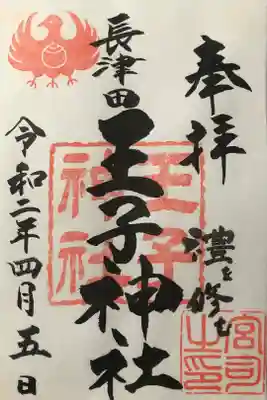 奉拝
禮を修む
長津田
王子神社
令和二年四月五日
王子
神社
宮司
之印